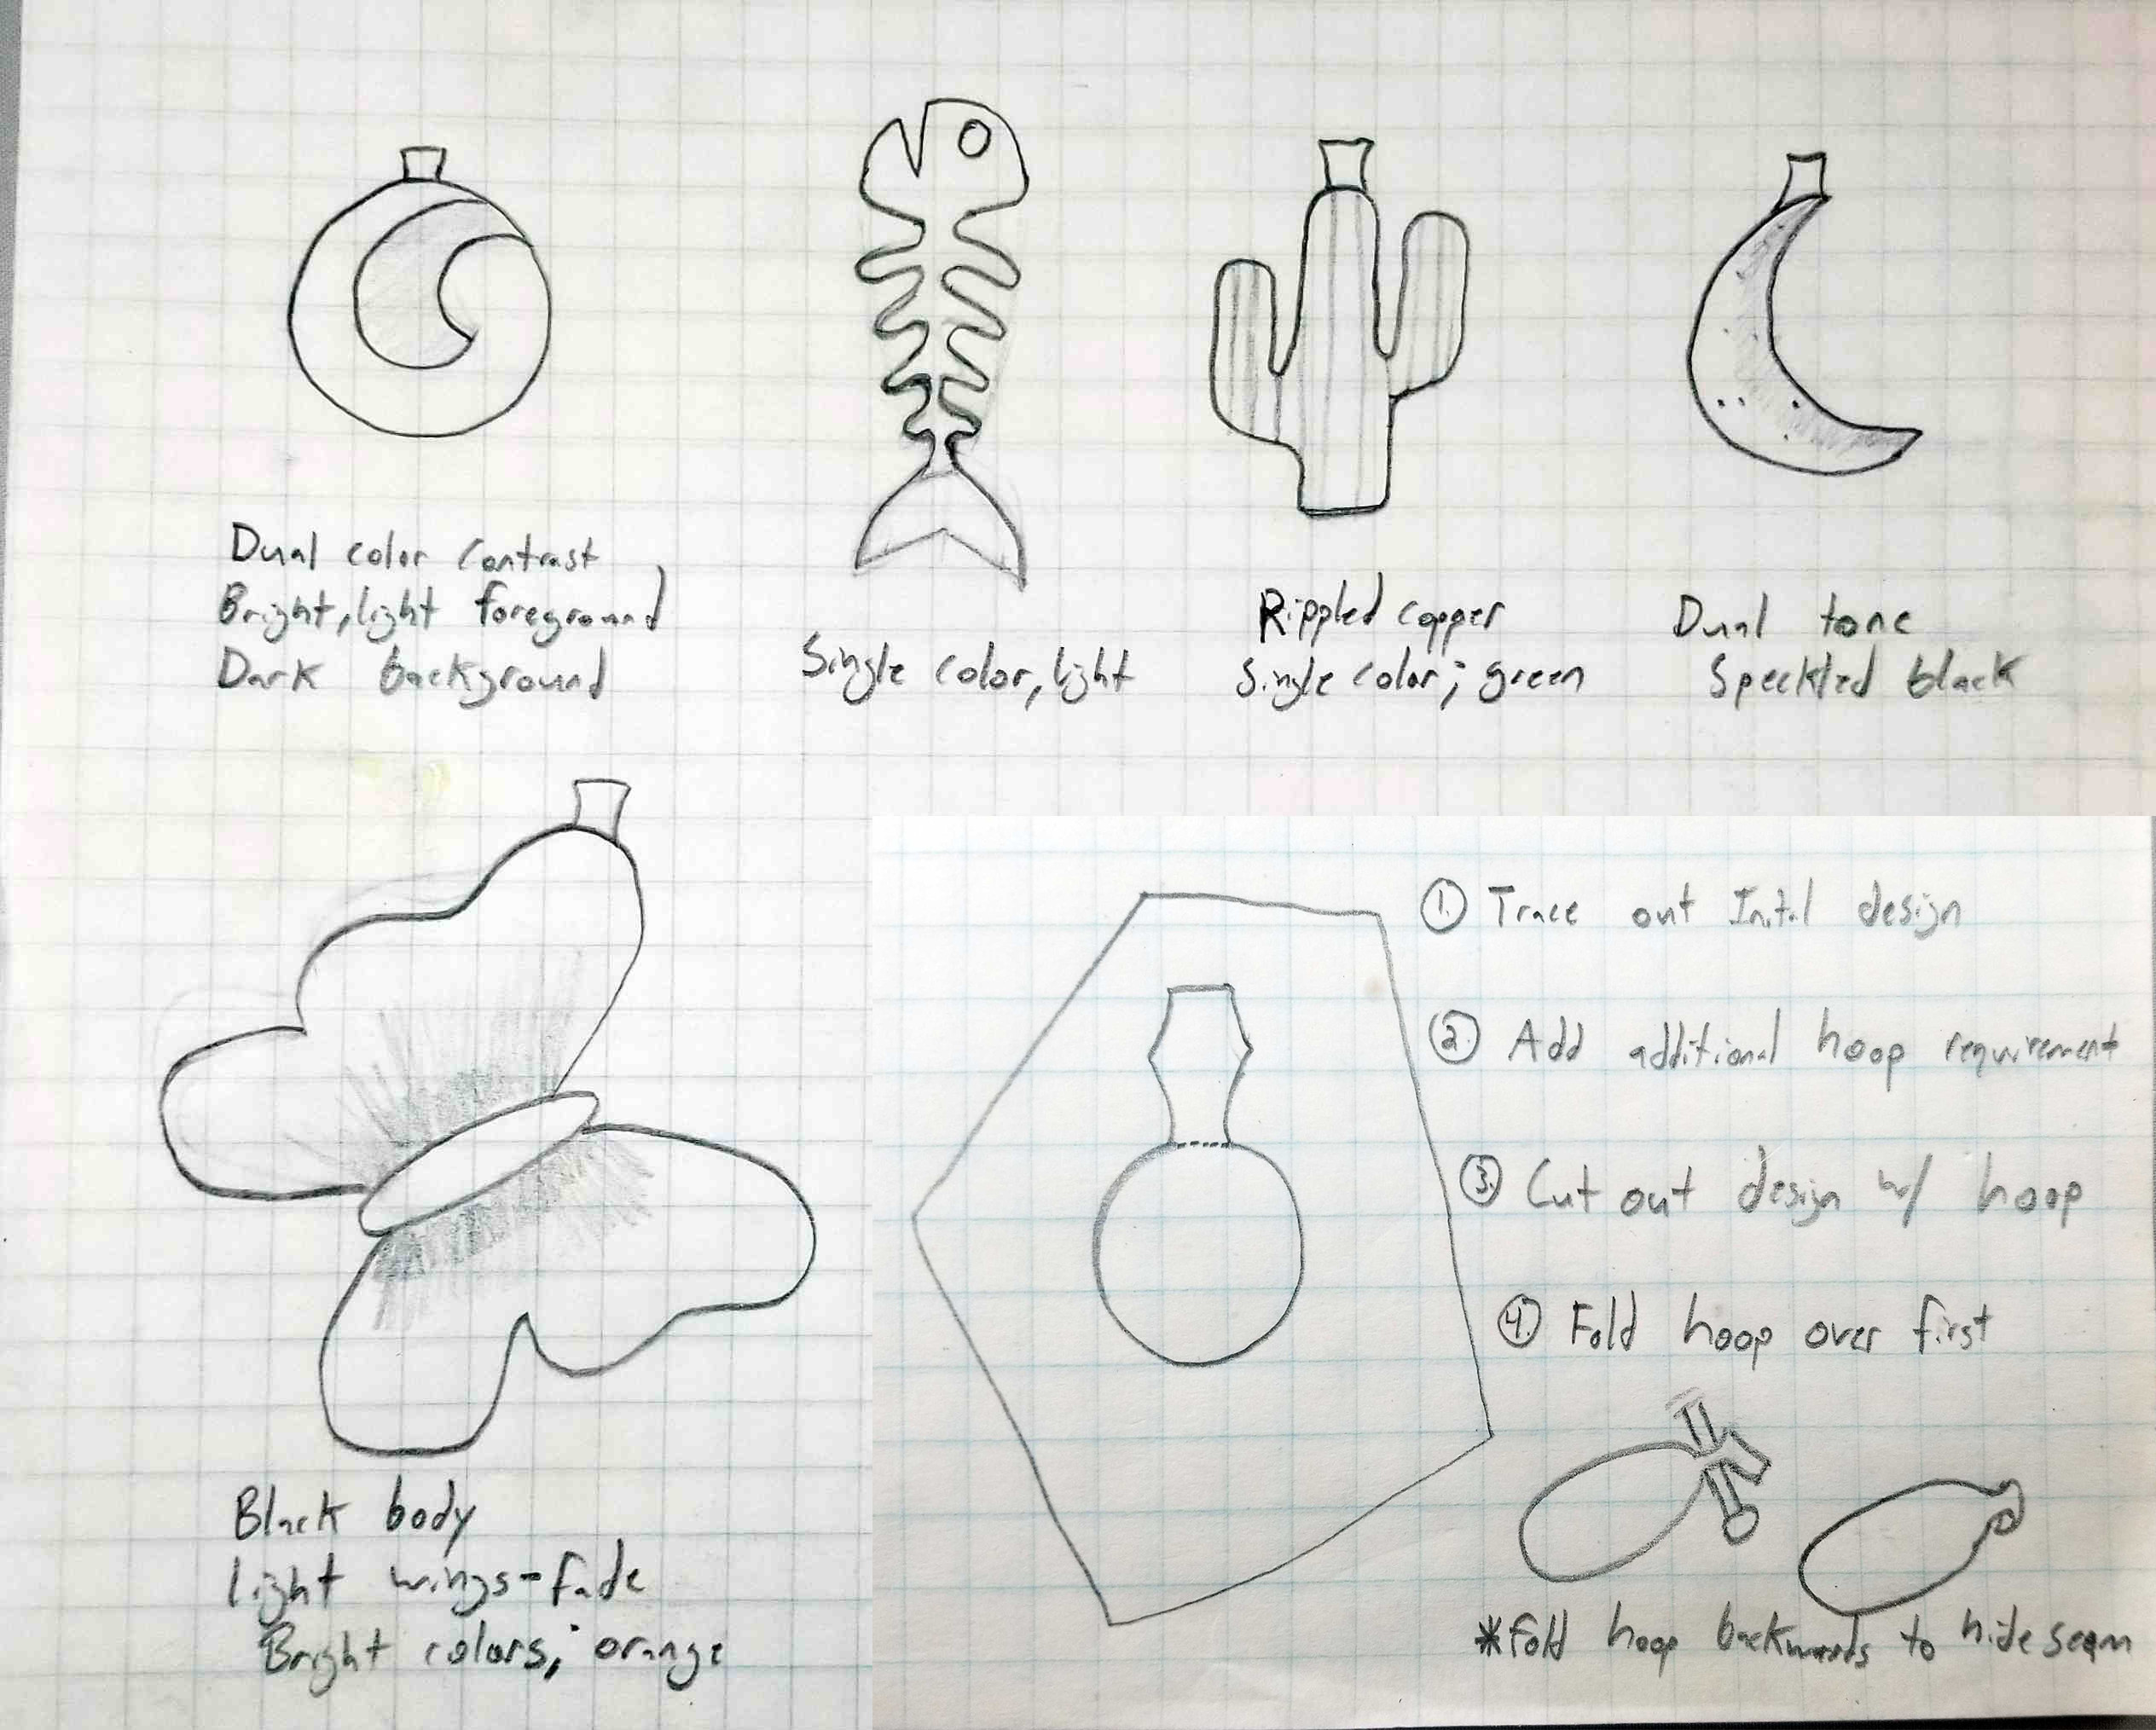 Dual color contrast
Bright, light foreground
Dark background
Single color, light
Rippled copper
Single color; green
Dual tone
Speckled black
Black body
light wings - fade
Bright colors; orange
1. Trace out Inital design
2. Add additional hoop requirement
3. Cut out design w/ hoop
4. Fold hoop over first
*Fold hoop backwards to hide seam